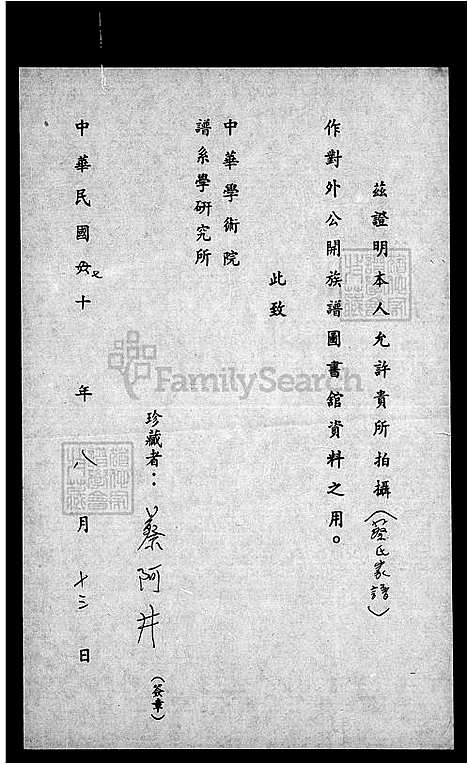 茲證明本人允許貴所拍攝(蔡氏家譜)
作對外公開族譜圖書館資料之用。
此致
中華學術院
譜系學研究所
珍藏者:蔡阿井(簽章)
中華民國七十年八月十三日
FamilySearch